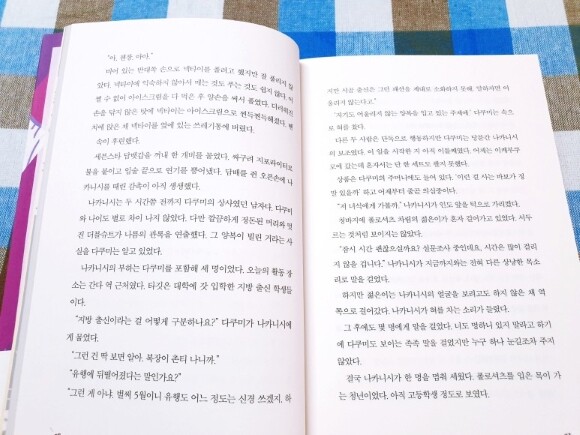 "아, 괜찮 아아."
마이 있는 반대쪽 손으로 넥타이를 풀려고 했지만 잘 풀리지 않
았다. 넥타이에 익숙하지 않아서 매는 것도 푸는 것도 쉽지 않다. 어
쩔 수 없이 아이스크림을 다 먹은 후 양손을 써서 풀었다. 더러워진
손을 닦지 않은 탓에 넥타이는 아이스크림으로 끈득끈득해졌다. 벤
치에 앉은 채 넥타이를 앞에 있는 쓰레기통에 버렸다.
속이 후련했다.
세븐스타 담뱃갑을 꺼내 한 개비를 물었다. 싸구려 지포라이터로
불을 붙이고 입술 끝으로 연기를 뿜어냈다. 담배를 쥔 오른손에 나
카니시를 때린 감촉이 아직 생생했다.
나카니시는 두 시간쯤 전까지 다쿠미의 상사였던 남자다. 다쿠미
와 나이도 별로 차이 나지 않았다. 다만 깔끔하게 정돈된 머리와 몇
인 더블슈트가 나름의 관록을 연출했다. 그 양복이 빌린 거라는 사
실을 다쿠미는 알고 있었다.
나카니시의 부하는 다쿠미를 포함해 세 명이었다. 오늘의 활동 장
소는 간다 역 근처였다. 타깃은 대학에 갓 입학한 지방 출신 학생들
이다.
"지방 출신이라는 걸 어떻게 구분하나요?" 다쿠미가 나카니시에
게 물었다.
"그런 긴 딱 보면 알아. 복장이 촌티 나니까."
"유행에 뒤떨어졌다는 말인가요?"
"그런 게 아냐. 벌써 5월이니 유행도 어느 정도는 신경 쓰겠지. 하
지만 시골 출신은 그런 패션을 제대로 소화하지 못해. 말하자면 어
울리지 않는다고."
'자기도 어울리지 않는 양복을 입고 있는 주제에.' 다쿠미는 속으
로 혀를 찼다.
다른 두 사람은 단독으로 행동하지만 다쿠미는 당분간 나카니시
의 보조였다. 이 일을 시작한 지 아직 이틀째였다. 어제는 이케부쿠
로에 갔는데 혼자서는 단 한 세트도 팔지 못했다.
상품은 다쿠미의 주머니에도 들어 있다. '이런 걸 사는 바보가 정
말 있을까' 하고 어제부터 줄곧 의심중이다.
"저 녀석에게 가볼까." 나카니시가 인도 앞을 턱으로 가리켰다.
청바지에 폴로셔츠 차림의 젊은이가 혼자 걸어가고 있었다. 서두
르는 것처럼 보이지는 않았다.
"잠시 시간 괜찮으실까요? 설문조사 중인데요, 시간은 많이 걸리
지 않을 겁니다." 나카니시가 지금까지와는 전혀 다른 상냥한 목소
리로 말을 걸었다.
하지만 젊은이는 나카니시의 얼굴을 보려고도 하지 않은 채 역
쪽으로 걸어갔다. 나카니시가 혀를 차는 소리가 들렸다.
그 후에도 몇 명에게 말을 걸었다. 너도 멍하니 있지 말라고 하기
에 다쿠미도 보이는 족족 말을 걸었지만 누구 하나 눈길조차 주지
않았다.
결국 나카니시가 한 명을 멈춰 세웠다. 폴로셔츠를 입은 목이 가
는 청년이었다. 아직 고등학생 정도로 보였다.